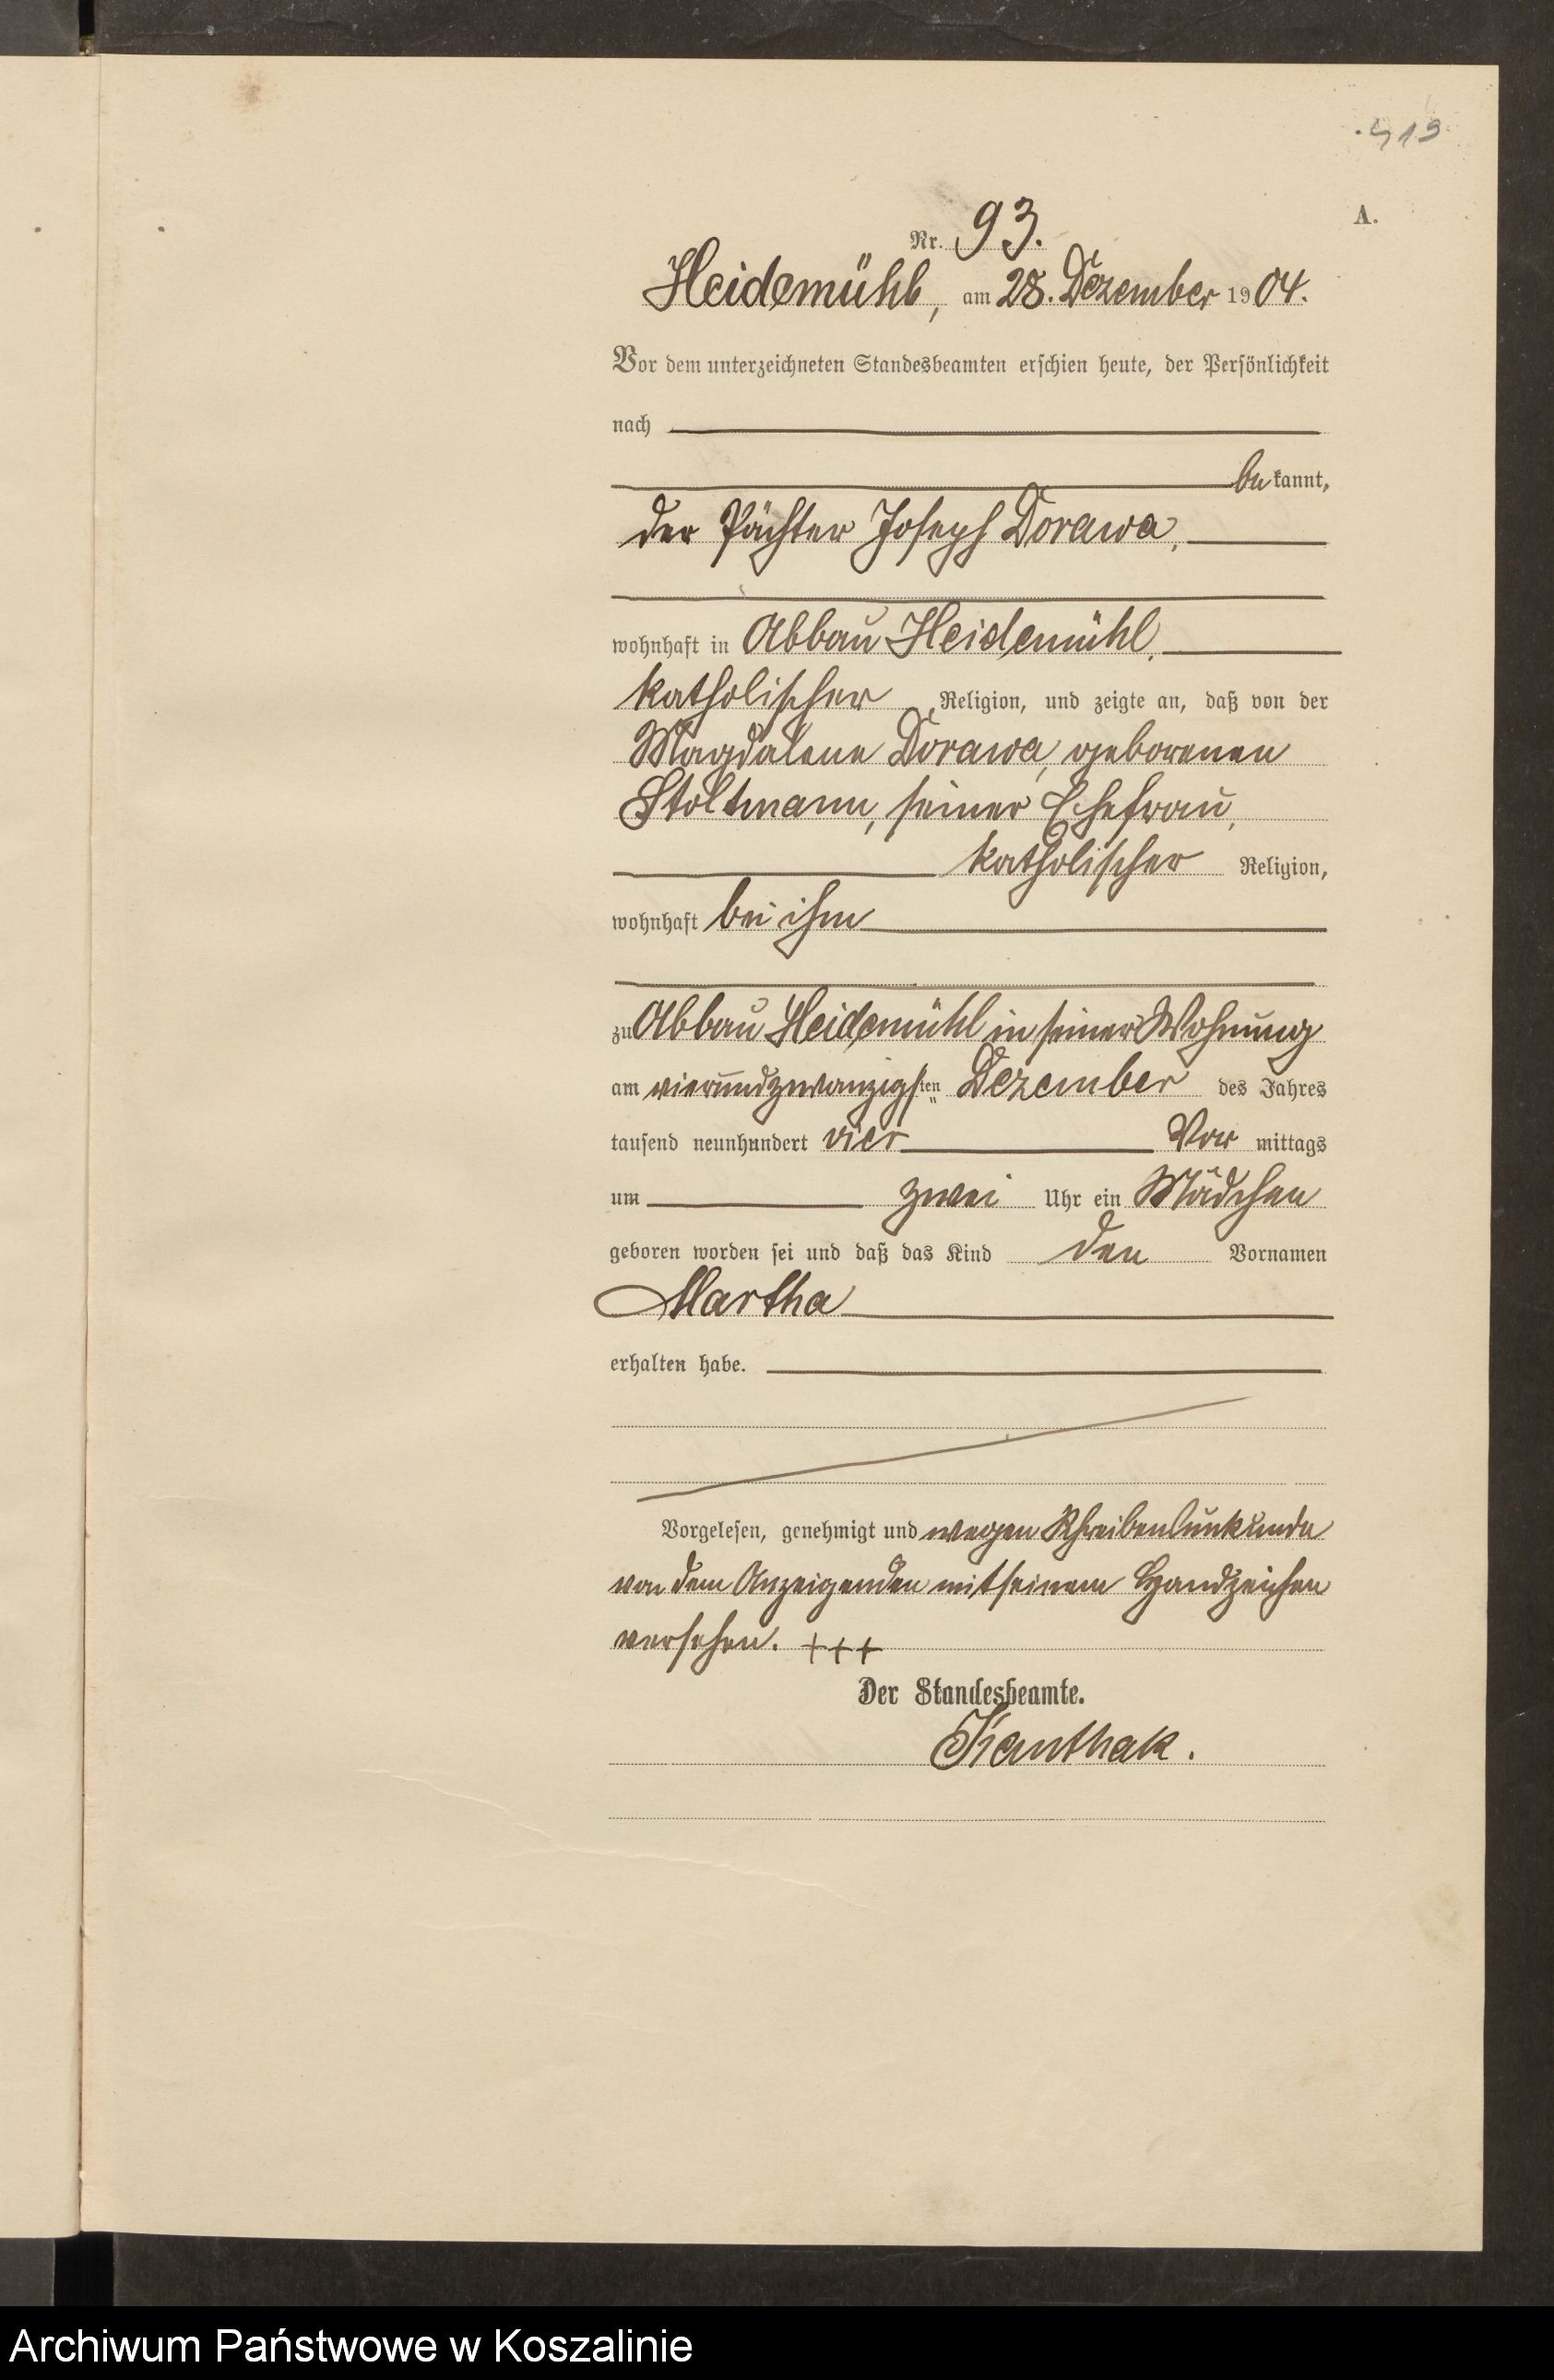 419
A.
Nr. 93.
Heidemühl, am 28. Dezember 1904.
Vor dem unterzeichneten Standesbeamten erschien heute, der Persönlichkeit
nach
bekannt,
der Pächter Joseph Dorawa,
wohnhaft in Abbau Heidemühl,
katholischer Religion, und zeigte an, daß von der
Magdalene Dorawa, geborenen
Stoltmann, seiner Ehefrau,
katholischer Religion,
wohnhaft bei ihm
zu Abbau Heidemühl in seiner Wohnung
am vierundzwanzigsten Dezember des Jahres
tausend neunhundert vier Vor mittags
um zwei Uhr ein Mädchen
geboren worden sei und daß das Kind den Vornamen
Martha
erhalten habe.
Vorgelesen, genehmigt und wegen Schreibensunkunde
von dem Anzeigenden mit seinem Handzeichen
versehen. +++
Der Standesbeamte.
Kanthak.
Archiwum Państwowe w Koszalinie